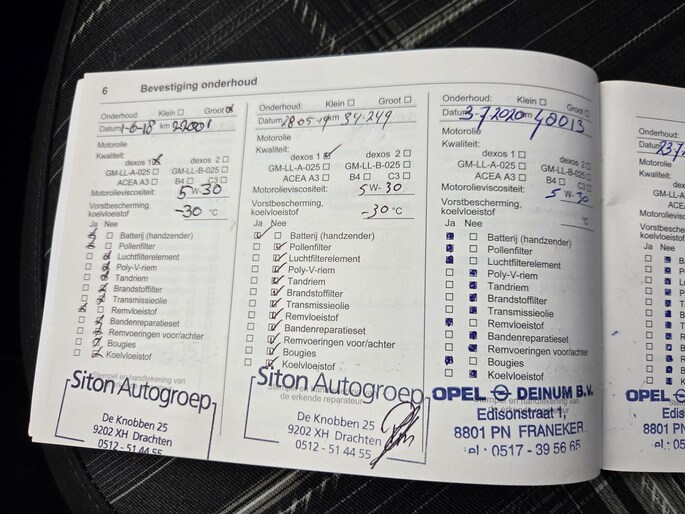 6 Bevestiging onderhoud
Onderhoud: Klein Groot
Datum 1-6-18 km 22001
Motorolie
Kwaliteit:
dexos 1 dexos 2
GM-LL-A-025 GM-LL-B-025
ACEA A3 B4 C3
Motorolieviscositeit: 5W-30
Vorstbescherming,
koelvloeistof -30 °C
Ja Nee
Batterij (handzender)
Pollenfilter
Luchtfilterelement
Poly-V-riem
Tandriem
Brandstoffilter
Transmissieolie
Remvloeistof
Bandenreparatieset
Remvoeringen voor/achter
Bougies
Koelvloeistof
Stempel en handtekening van
Siton Autogroep
De Knobben 25
9202 XH Drachten
0512-51 44 55
Onderhoud: Klein Groot
Datum 28-05-19 km 34.249
Motorolie
Kwaliteit:
dexos 1 dexos 2
GM-LL-A-025 GM-LL-B-025
ACEA A3 B4 C3
Motorolieviscositeit: 5W-30
Vorstbescherming,
koelvloeistof -30 °C
Ja Nee
Batterij (handzender)
Pollenfilter
Luchtfilterelement
Poly-V-riem
Tandriem
Brandstoffilter
Transmissieolie
Remvloeistof
Bandenreparatieset
Remvoeringen voor/achter
Bougies
Koelvloeistof
Siton Autogroep
de erkende reparateur
De Knobben 25
9202 XH Drachten
0512-51 44 55
Onderhoud: Klein Groot
Datum 3-7-2020 km 48013
Motorolie
Kwaliteit:
dexos 1 dexos 2
GM-LL-A-025 GM-LL-B-025
ACEA A3 B4 C3
Motorolieviscositeit: 5 W-30
Vorstbescherming,
koelvloeistof °C
Ja Nee
Batterij (handzender)
Pollenfilter
Luchtfilterelement
Poly-V-riem
Tandriem
Brandstoffilter
Transmissieolie
Remvloeistof
Bandenreparatieset
Remvoeringen voor/achter
Bougies
Koelvloeistof
OPEL DEINUM B.V.
Stempel en handtekening van
Edisonstraat 1,
8801 PN FRANEKER
el.: 0517 - 39 56 65
Onderhoud:
Datum 23-7
Motorolie
Kwaliteit:
GM-LL-A
ACEA
Motorolieviscos
Vorstbescherming
koelvloeistof
Ja Nee
OPEL
Edis
8801
el.: 05